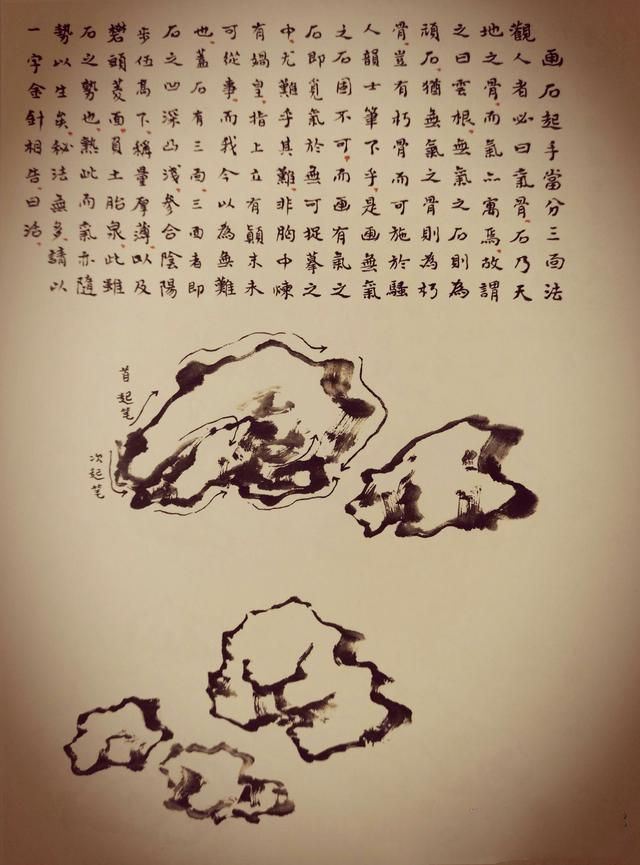 画石起手當分三面法
觀人者必曰氣骨石乃天
地之骨而氣亦寓焉故謂
之曰雲根無氣之石則為
頑石猶無氣之骨則為朽
骨豈有朽骨而可施於騷
人韻士筆下乎是画無氣
之石固不可而画有氣之
石即覓氣於無可捉摹之
中尤難乎其難非胸中煉
有媧皇指上立有顛末未
可從事而我今以為無難
也蓋石有三面三面者即
石之凹深凸淺參合陰陽
步伍高下稱量厚薄以及
礬頭菱面員土胎泉此雖
石之勢也熟此而氣亦隨
勢以生矣秘法無多請以
一字金針相告曰活
首起笔
次起笔